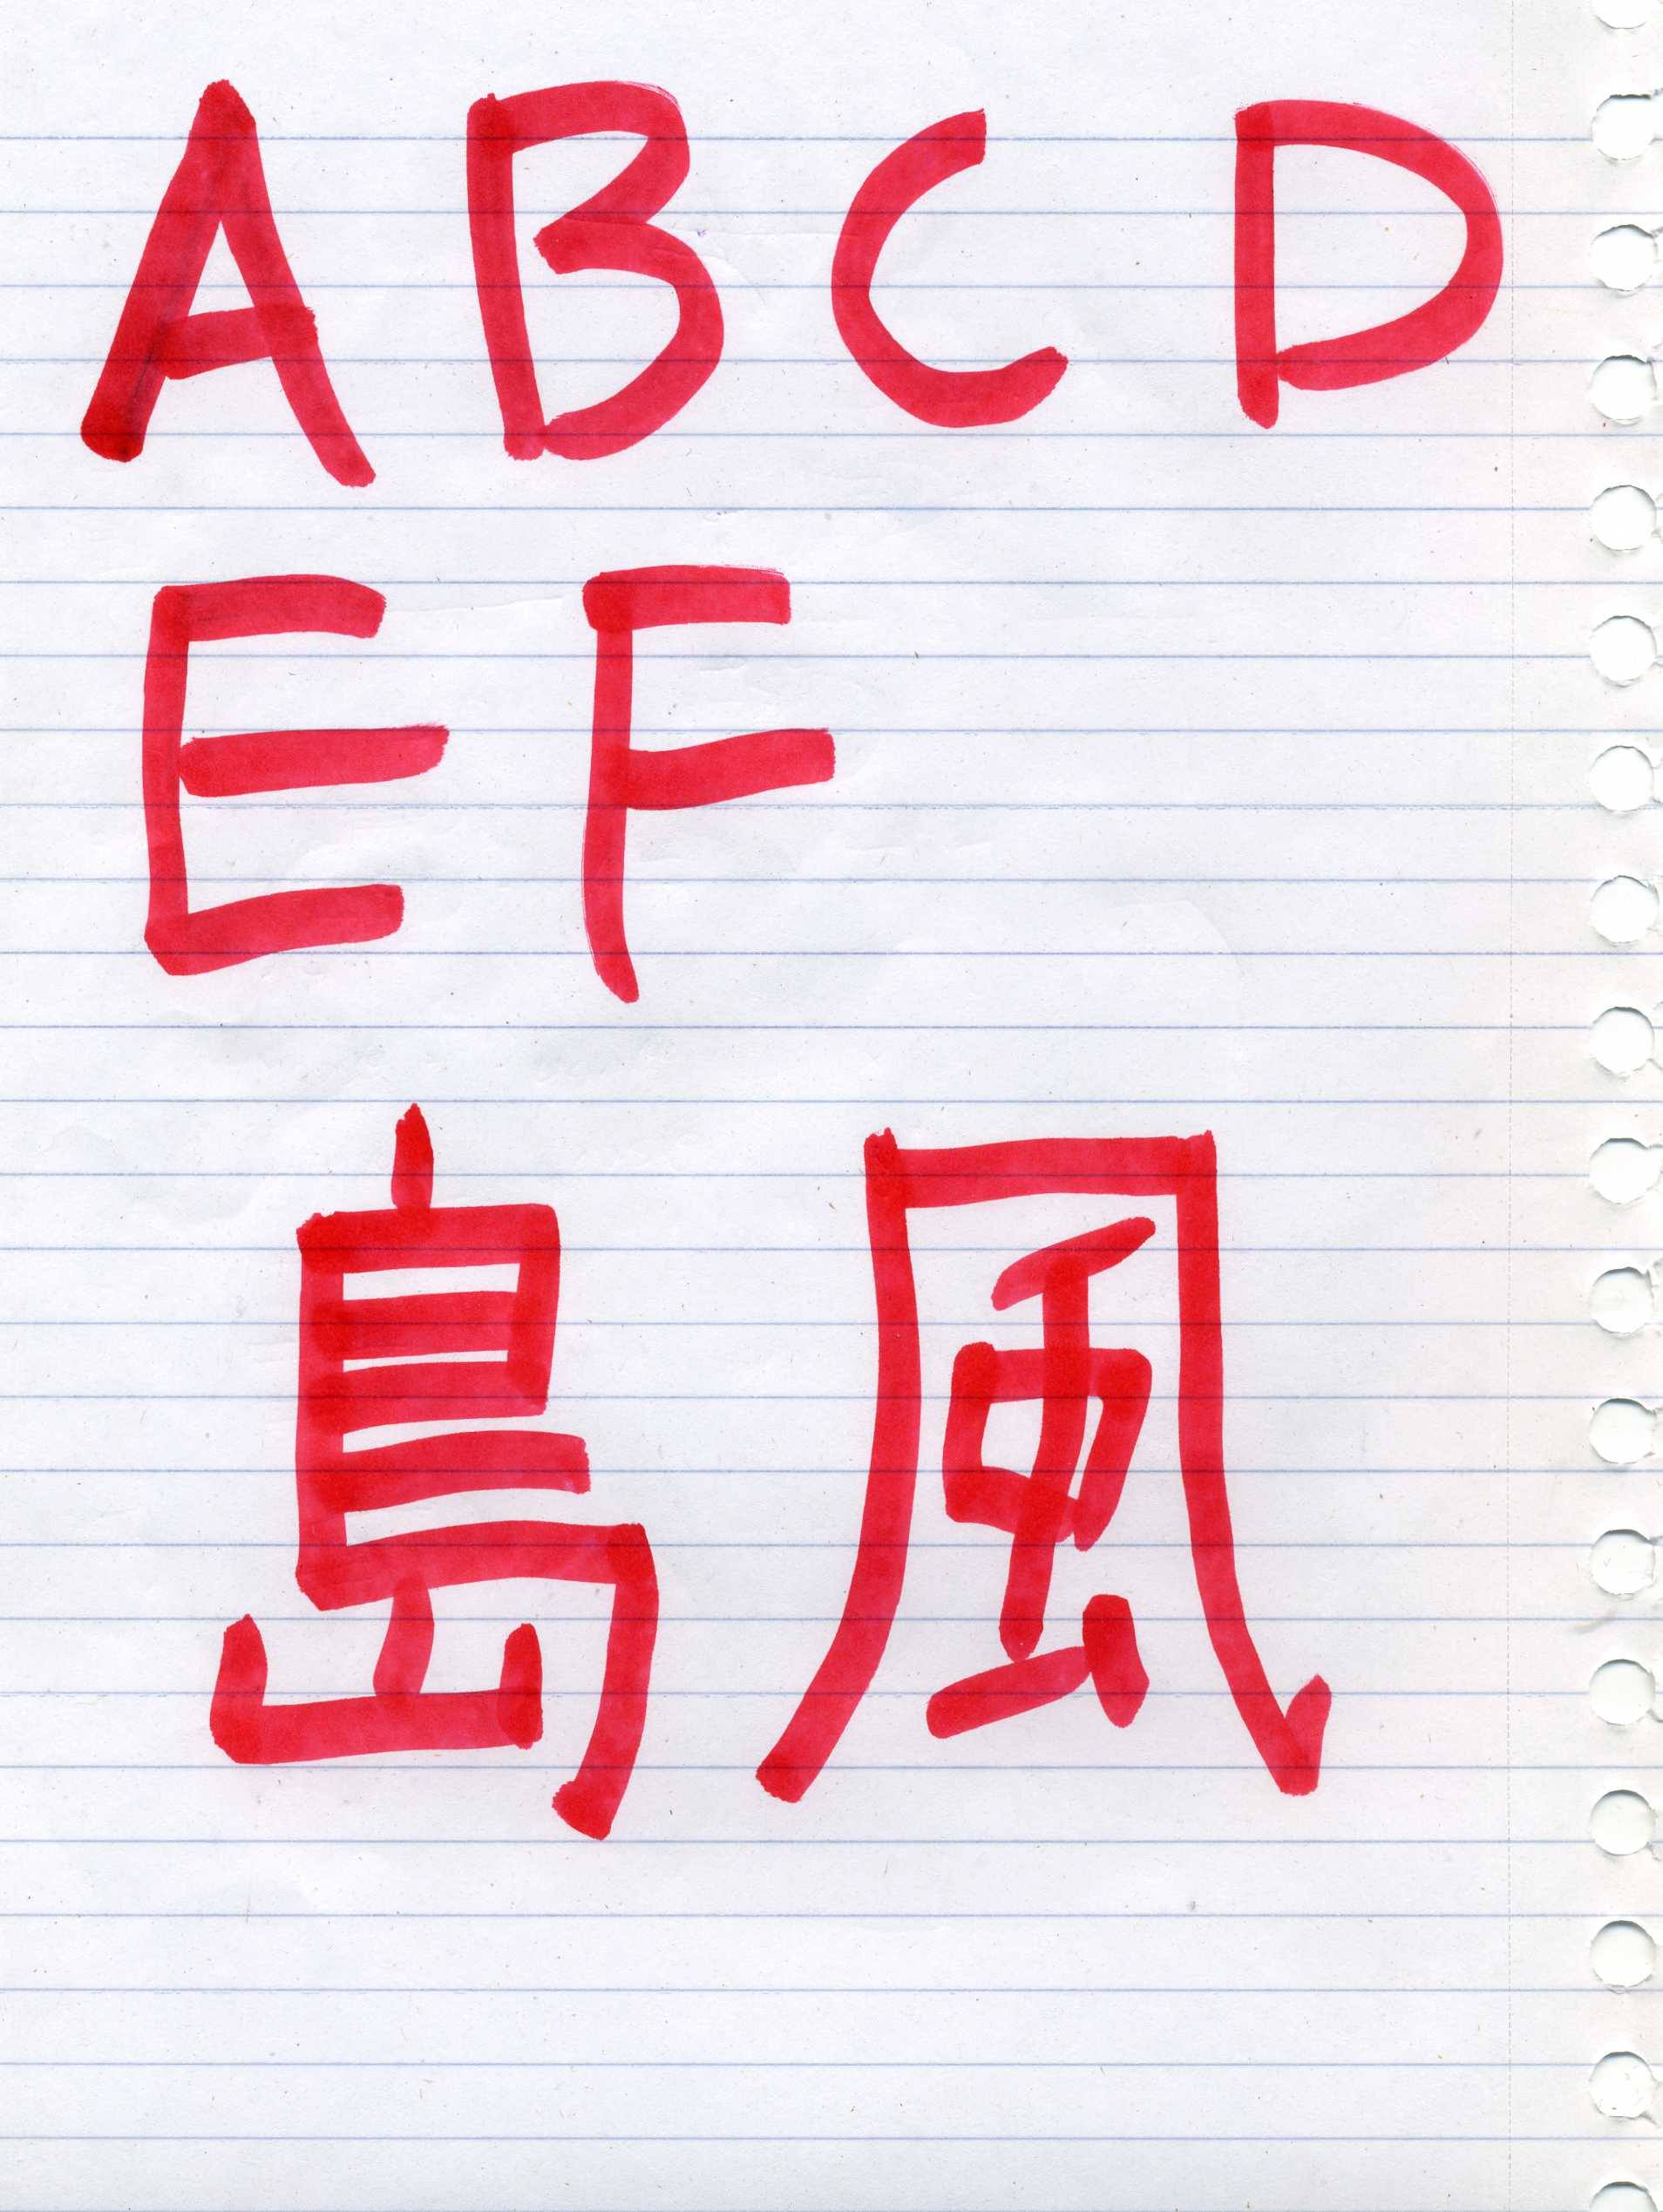 A B C D
E F
島風